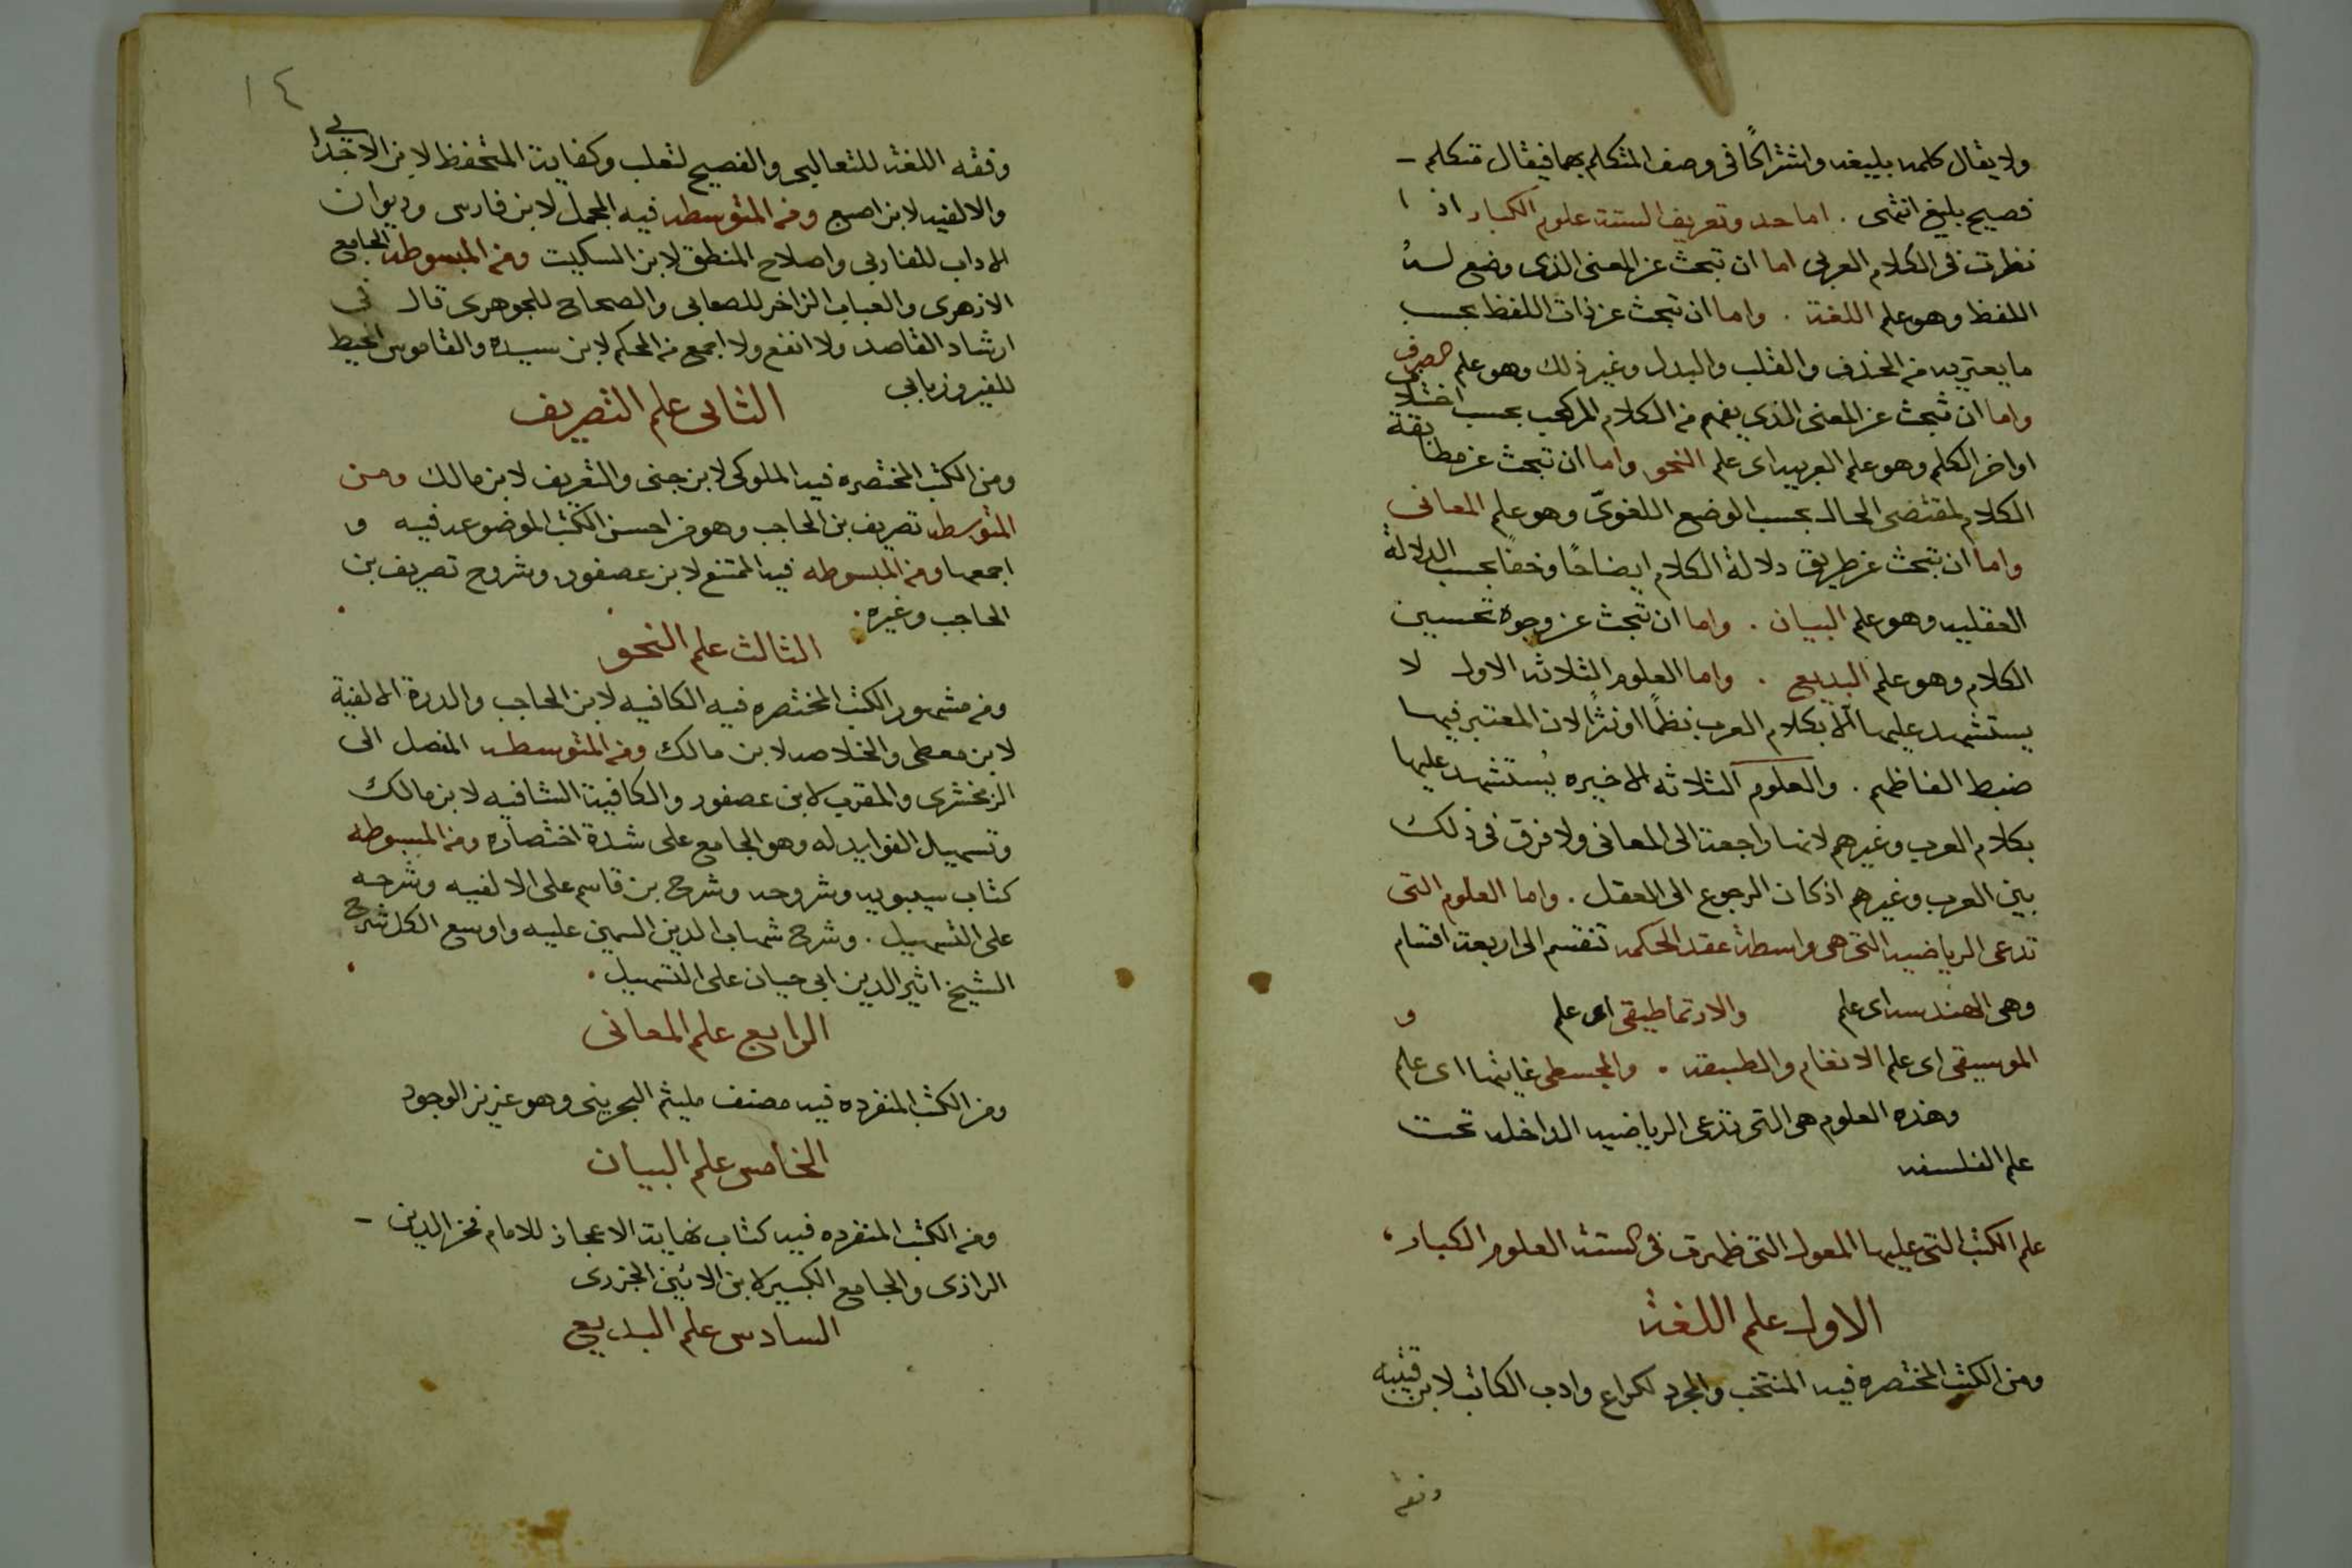 ولا يقال كلمه بليغه واشتراكًا في وصف المتكلم بهما فيقال متكلم
فصيح بليغ انتهى . اما حد وتعريف الستة علوم الكبار اذا
نظرت في الكلام العربي اما ان تبحث عن المعنى الذي وضع له
اللفظ وهو علم اللغة . واما ان تبحث عن ذات اللفظ بحسب
ما يعتريه من الحذف والقلب والبدل وغير ذلك وهو علم الصرف
واما ان تبحث عن المعنى الذي يفهم من الكلام المركب بحسب اختلاف
اواخر الكلم وهو علم العربيه اي علم النحو واما ان تبحث عن مطابقة
الكلام لمقتضى الحال بحسب الوضع اللغويّ وهو علم المعاني
واما ان تبحث عن طريق دلالة الكلام ايضاحًا وخفًا بحسب الدلالة
العقليه وهو علم البيان . واما ان تبحث عن وجوه تحسين
الكلام وهو علم البديع . واما العلوم الثلاثه الاول لا
يستشهد عليها الا بكلام العرب نظمًا او نثرًا لان المعتبر فيها
ضبط الفاظهم . والعلوم الثلاثه الاخيره يُستشهد عليها
بكلام العرب وغيرهم لانها راجعة الى المعاني ولا فرق في ذلك
بين العرب وغيرهم اذ كان الرجوع الى العقل . واما العلوم التي
تدعى الرياضيه التي هي واسطة عقد الحكمه تنقسم الى اربعة اقسام
وهي الهندسه اي علم والارتماطيقي اي علم و
الموسيقى اي علم الانغام والطبقه . والمجسطي غايتها اي علم
وهذه العلوم هي التي تدعى الرياضيه الداخله تحت
علم الفلسفه
علم الكتب التي عليها المعول التي ظهرت في الستة العلوم الكبار
الاول علم اللغة
ومن الكتب المختصره فيه المنتخب والمجرد لكراع وادب الكاتب لابن قتيبه
وفقه
١٤
وفقه اللغة للثعالبي والفصيح لثعلب وكفاية المتحفظ لابن الاجدابي
والالفيه لابن اصبع ومن المتوسطه فيه المجمل لابن فارس وديوان
الاداب للفارابي واصلاح المنطق لابن السكيت ومن المبسوطه الجامع
الازهري والعباب الزاخر للصغاني والصحاح للجوهري قال في
ارشاد القاصد ولا انفع ولا اجمع من المحكم لابن سيده والقاموس المحيط
للفيروزبابي
الثاني علم التصريف
ومن الكتب المختصره فيه الملوكي لابن جني والتعريف لابن مالك ومن
المتوسطه تصريف بن الحاجب وهو من احسن الكتب الموضوعه فيه و
اجمعها ومن المبسوطه فيه الممتع لابن عصفور وشروح تصريف بن
الحاجب وغيره .
الثالث علم النحو
ومن مشهور الكتب المختصره فيه الكافيه لابن الحاجب والدرة الالفية
لابن معطي والخلاصه لابن مالك ومن المتوسطه المفصل الى
الزمخشري والمقرب لابن عصفور والكافية الشافيه لابن مالك
وتسهيل الفوايد له وهو الجامع على شدة اختصاره ومن المبسوطه
كتاب سيبويه وشروحه وشرح بن قاسم على الالفيه وشرحه
على التسهيل . وشرح شهاب الدين السمين عليه واوسع الكل شرح
الشيخ اثير الدين ابي حيان على التسهيل .
الرابع علم المعاني
ومن الكتب المنفرده فيه مصنف مليثم البحريني وهو عزيز الوجود
الخامس علم البيان
ومن الكتب المنفرده فيه كتاب نهاية الاعجاز للامام فخر الدين
الرازي والجامع الكبير لابن الاثير الجزري
السادس علم البديع